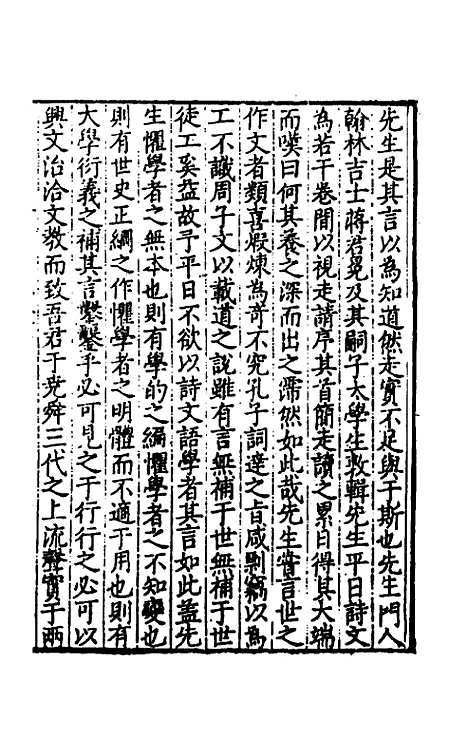 先生是其言以為知道然走實不足與于斯也先生門人
翰林吉士蔣君冕及其嗣子太學生敦輯先生平日詩文
為若干卷間以視走請序其首簡走讀之累日得其大端
而嘆曰何其養之深而出之霈然如此哉先生嘗言世之
作文者類喜煆煉為奇不究孔子詞達之旨咸剽竊以為
工不識周子文以載道之說雖有言無補于世無補于世
徒工奚益故予平日不欲以詩文語學者其言如此蓋先
生懼學者之無本也則有學的之編懼學者之不知變也
則有世史正綱之作懼學者之明體而不適于用也則有
大學衍義之補其言鑿鑿乎必可見之于行行之必可以
興文治洽文教而致吾君于堯舜三代之上流聲實于兩